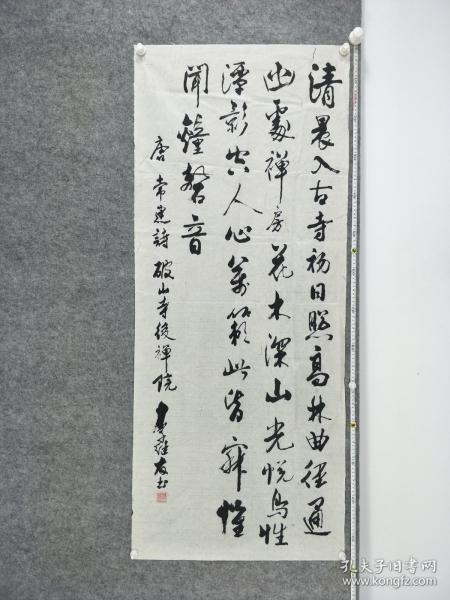 清晨入古寺初日照高林曲径通
幽處禅房花木深山光悦鳥性
潭影空人心萬籟此皆寂惟
聞鐘磬音
唐常建詩破山寺後禅院
友书
孔夫子旧书网
www.kongfz.com